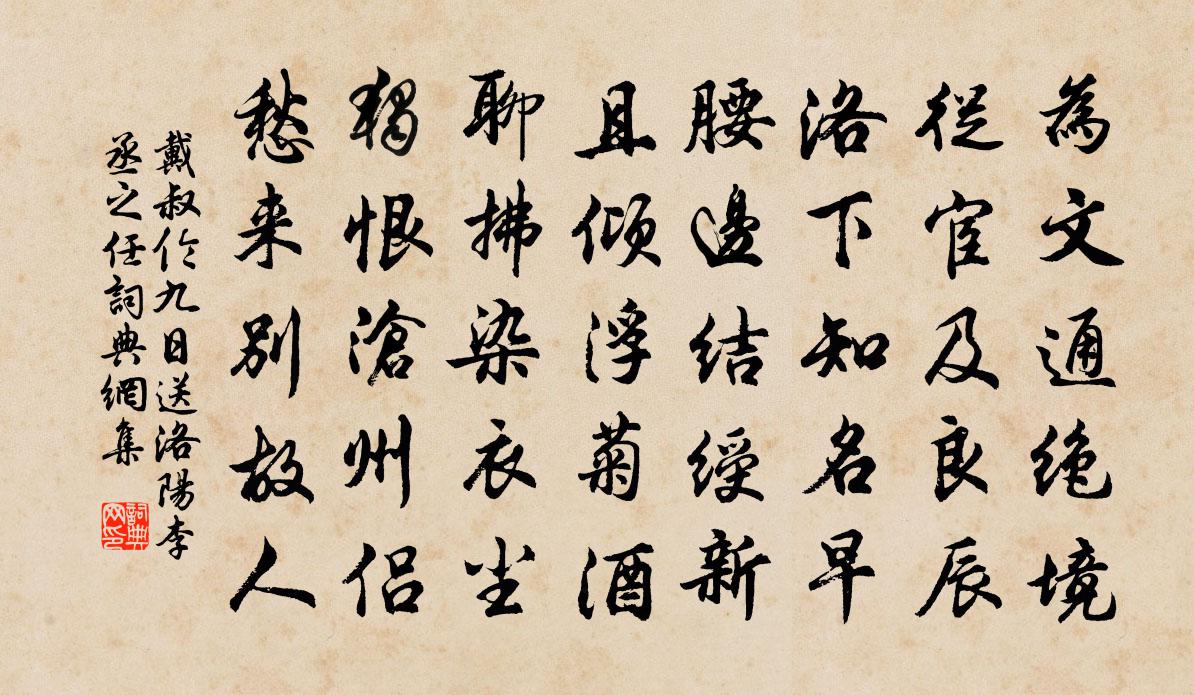 為文通絶境
從宦及良辰
洛下知名早
腰邊結綬新
且傾浮菊酒
聊拂染衣尘
獨恨滄州侣
愁来别故人
戴叔伦九日送洛陽李
丞之任詞典網集
詞典网印